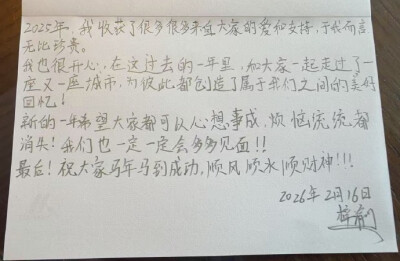 2025年,我收获了很多很多来自大家的爱和支持,于我而言
无比珍贵。
我也很开心,在这过去的一年里,和大家一起走过了一
座又一座城市,为彼此都创造了属于我们之间的美好
回忆!
新的一年希望大家都可以心想事成,烦恼统统都
消失!我们也一定一定会多多见面!!
最后!祝大家马年马到成功,顺风顺水顺财神!!!
2026年2月16日